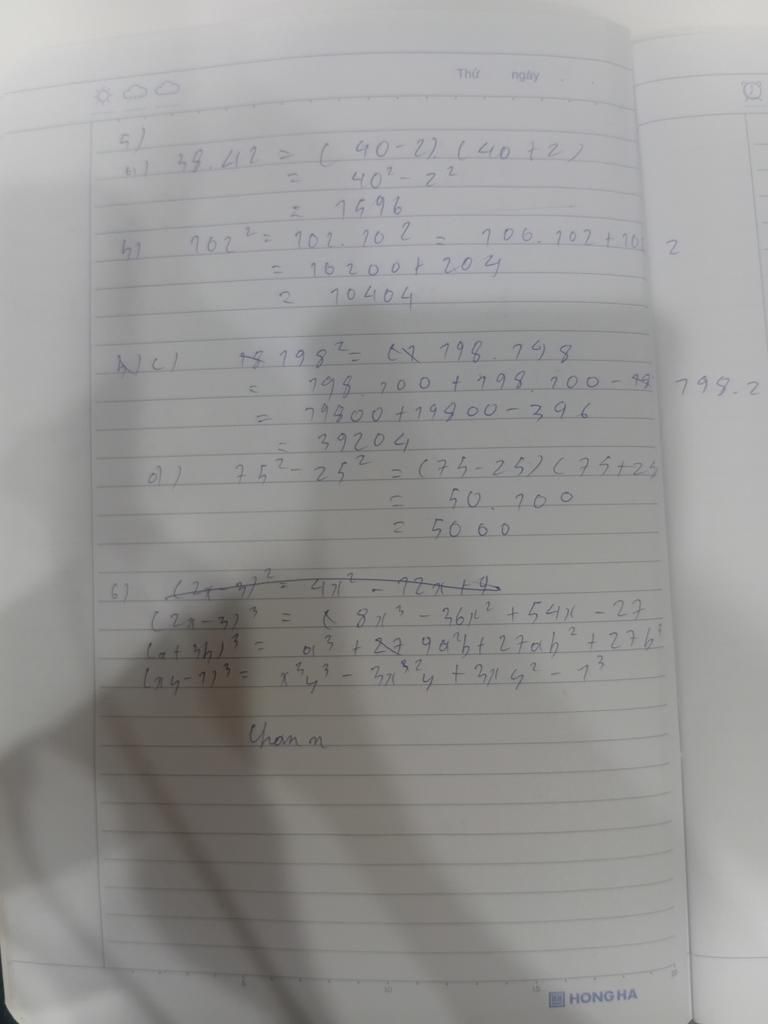 Thứ ngày
5)
a) 38.42 = (40-2).(40+2)
= 40² - 2²
= 1596
b) 102² = 102.102 = 100.102+102.2
= 10200+204
= 10404
c) 198² = 198.198
= 198.100 + 198.100 - 198.2
= 19800+19800-396
= 39204
d) 75² - 25² = (75-25)(75+25
= 50.100
= 5000
6) (2x-3)² = 4x² - 12x+9
(2x-3)³ = 8x³ - 36x² + 54x - 27
(a+3b)³ = a³ + 9a²b + 27ab² + 27b³
(xy-1)³ = x³y³ - 3x²y + 3xy² - 1³
5 10 15
HONG HA